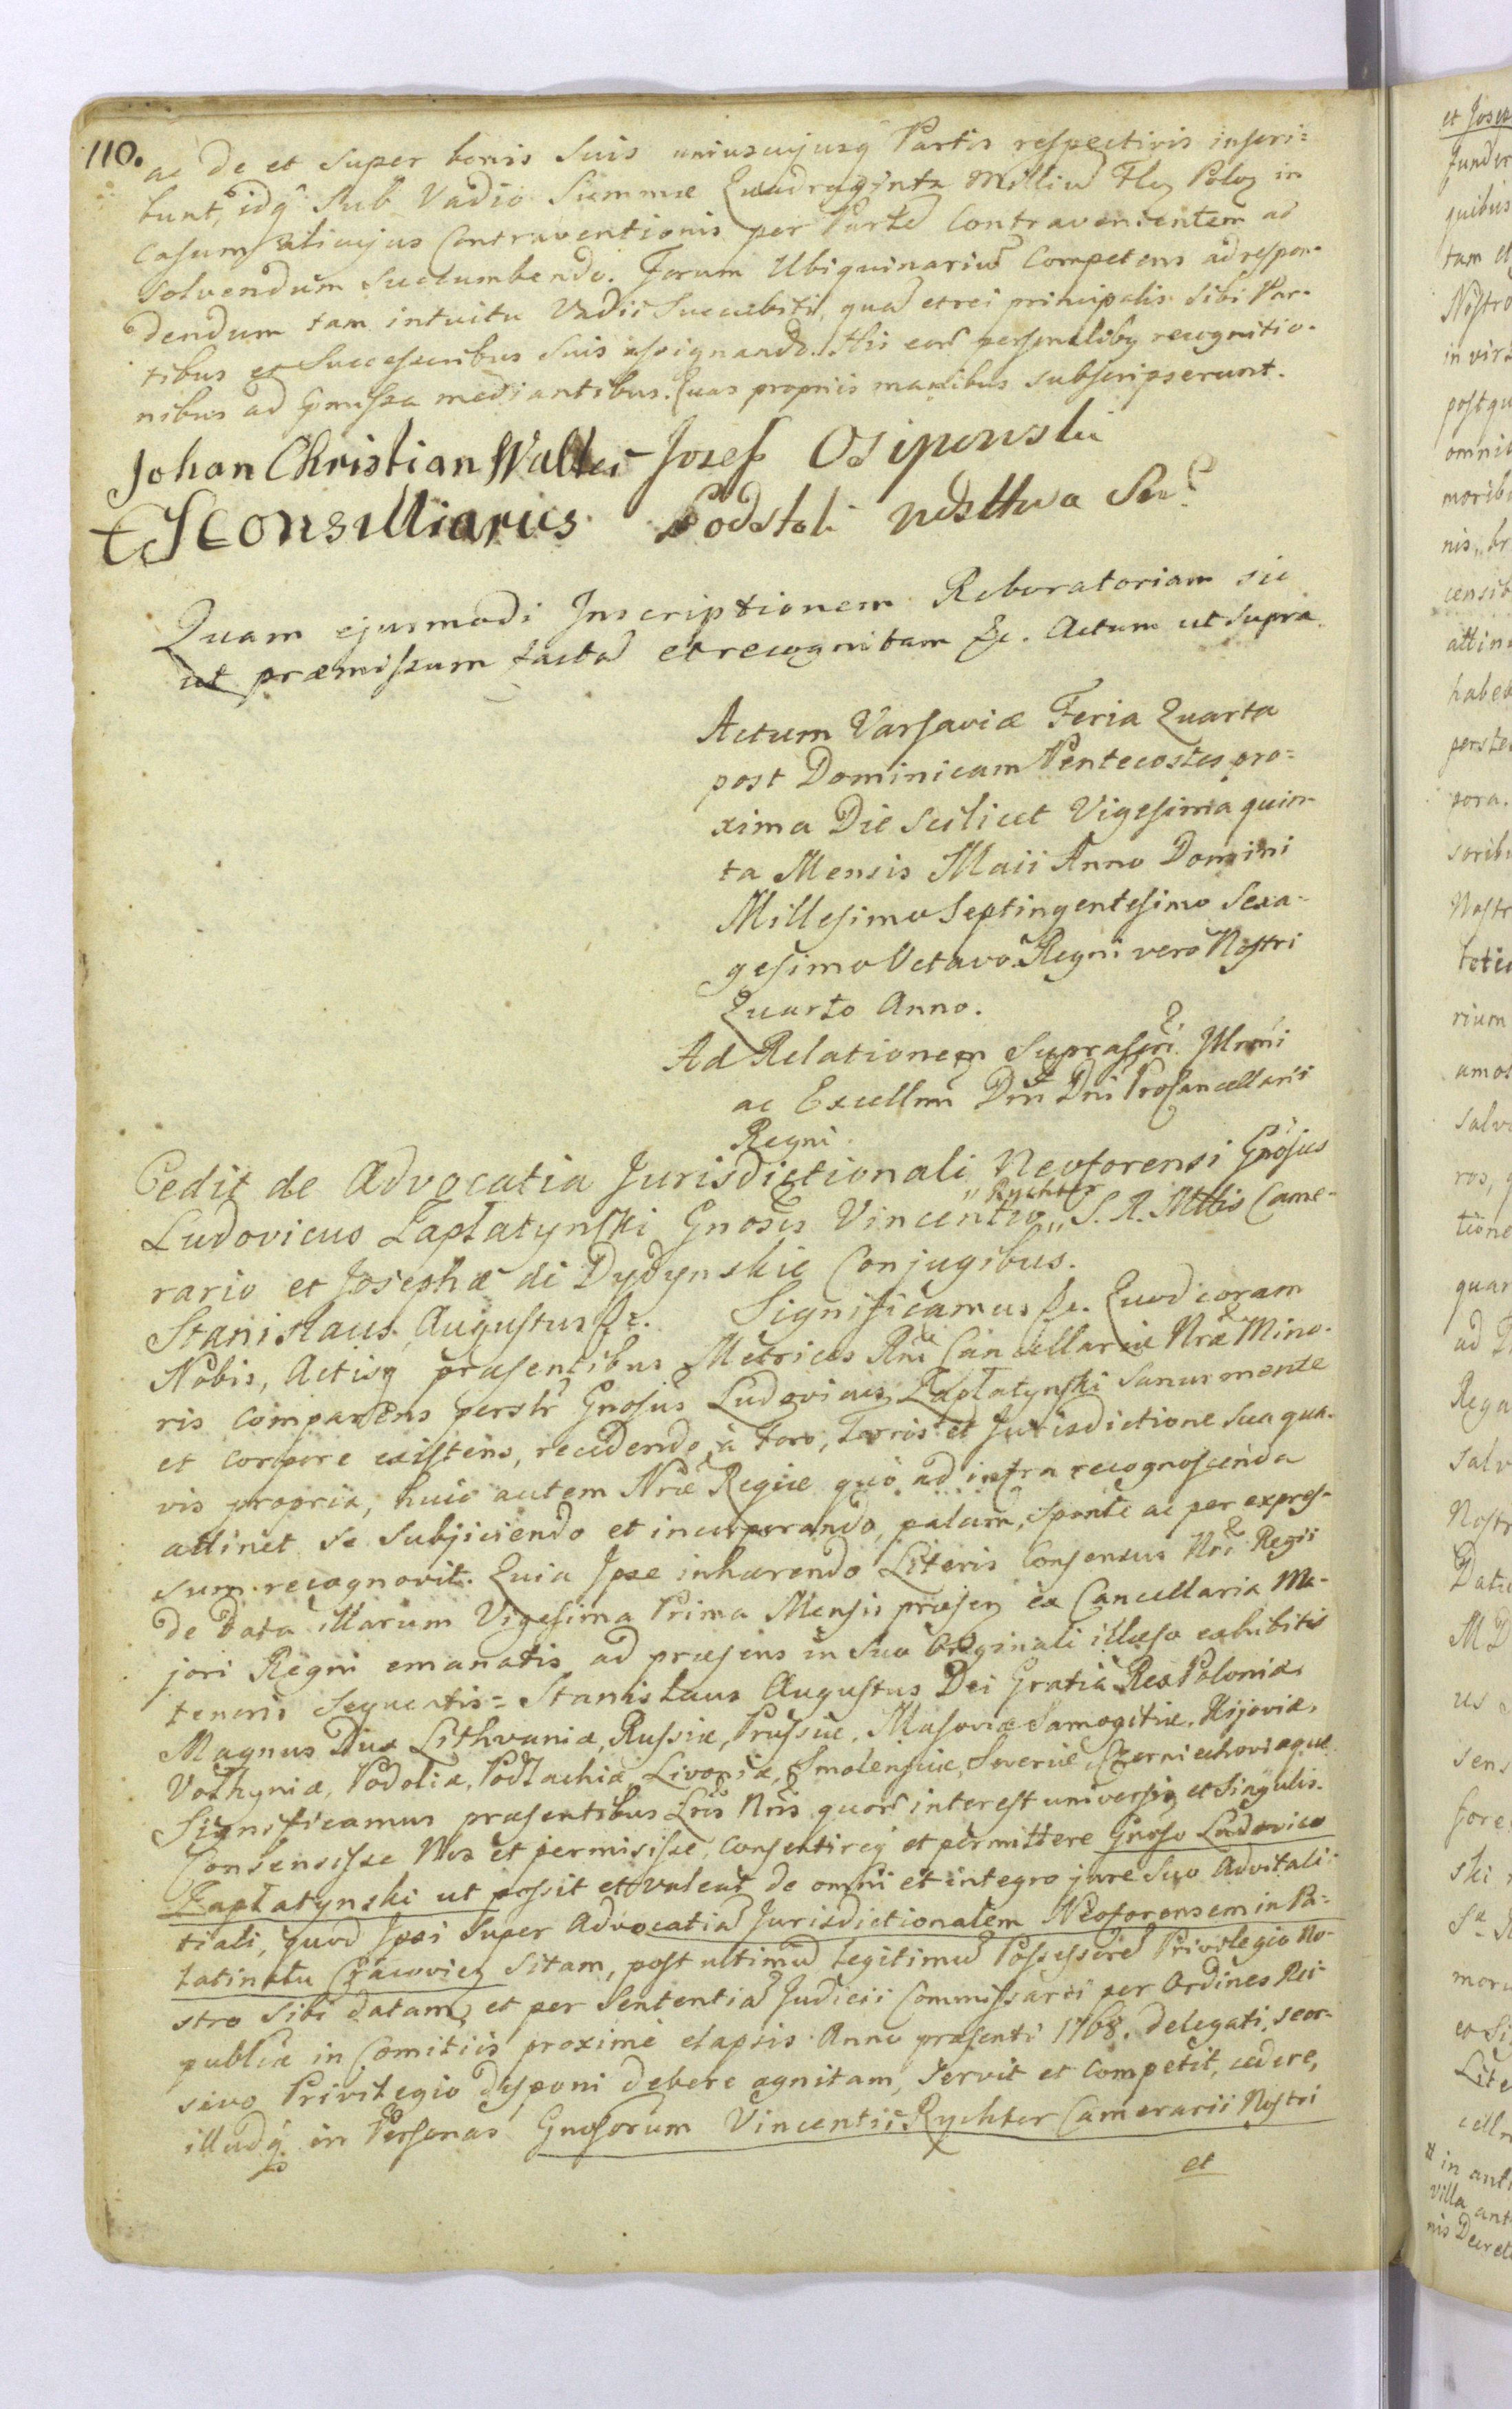 110.
ac de et super bonis suis uniuscujusq Partis respectivis inscri=
bunt, idq sub Vadio Summæ Quadraginta Milliu Flg Polg in
casum alicujus Contraventionis per Parte Contravenientem ad
solvendum succumbendo. Forum Ubiquinariu Competens ad respon-
dendum tam intuitu Vadii Succubiti, qua et rei principalis sibi Par-
tibus et Successoribus suis assignando. His ear personalibg recognitio-
nibus ad præmissa mediantibus. Quas propriis manibus subscripserunt.
Johan Christian Walter Jozef Osipowski
Consilliarius Podstoli
Quam ejusmodi Inscriptionem Roboratoriam sic
ut præmissum facta et recognitam &c. Actum ut supra.
Actum Varsaviæ Feria Quarta
post Dominicam Pentecostes pro=
xima Die scilicet Vigesima quin-
ta Mensis Maii Anno Domini
Millesimo Septingentesimo Sexa-
gesimo Octavo Regni vero Nostri
Quarto Anno.
Ad Relationem suprascri Illrmi
ac Excellmi Dni Dni Procancellarii
Regni.
Cedit de Advocatia Jurisdictionali Neoforensi Gnosus
Ludovicus Łapłatynski Gnosis Vincentio „Rychter„ S. R. Mttis Came-
rario et Josephæ de Dydynskie Conjugibus.
Stanislaus Augustus &c. Significamus &c. Quod coram
Nobis, Actisq præsentibus Metrices Rni Cancellariæ Nræ Mino-
ris comparens perslr Gnosus Ludovicus Łapłatynski sanus mente
et corpore existens, recedendo à Foro, Terris et Jurisdictione sua qua-
vis propria, huic autem Nræ Regiæ quo ad infra recognoscenda
attinet se subjiciendo et incorporando, palam, sponte ac per expres-
sum recognovit. Quia Ipse inhærendo Literis Consensus Nri Regii
de Data illarum Vigesima Prima Mensis præseng ex Cancellaria Ma-
jori Regni emanatis ad præsens in suo Originali illæso exhibitis
tenoris sequentis = Stanislaus Augustus Dei Gratia Rex Poloniæ,
Magnus Dux Lithvaniæ, Russiæ, Prussiæ, Masoviæ Samogitiæ, Kijoviæ,
Vołhyniæ, Podoliæ, Podlachiæ, Livoniæ, Smolensciæ, Severiæ Czerniechoviæque
Significamus præsentibus Lris Nris quor interest universis et singulis.
Consensisse Nos et permisisse, consentireq et permittere Gnoso Ludovico
Łapłatynski ut possit et valeat de omni et integro jure suo Advitali-
tiali, quod Ipsi super Advocatia Jurisdictionalem Neoforensem in Pa=
latinatu Cracovieng sitam, post ultimu legitimu Possessore Privilegio No-
stro sibi datam, et per Sententia Judicii Commissarii per Ordines Rei-
publicæ in Comitiis proxime elapsis Anno præsenti 1768. delegati, seor-
sivo Privilegio disponi debere agnitam, servit et competit, cedere,
illudq in Personas Gnosorum Vincentii Rychter Camerarii Nostri
et